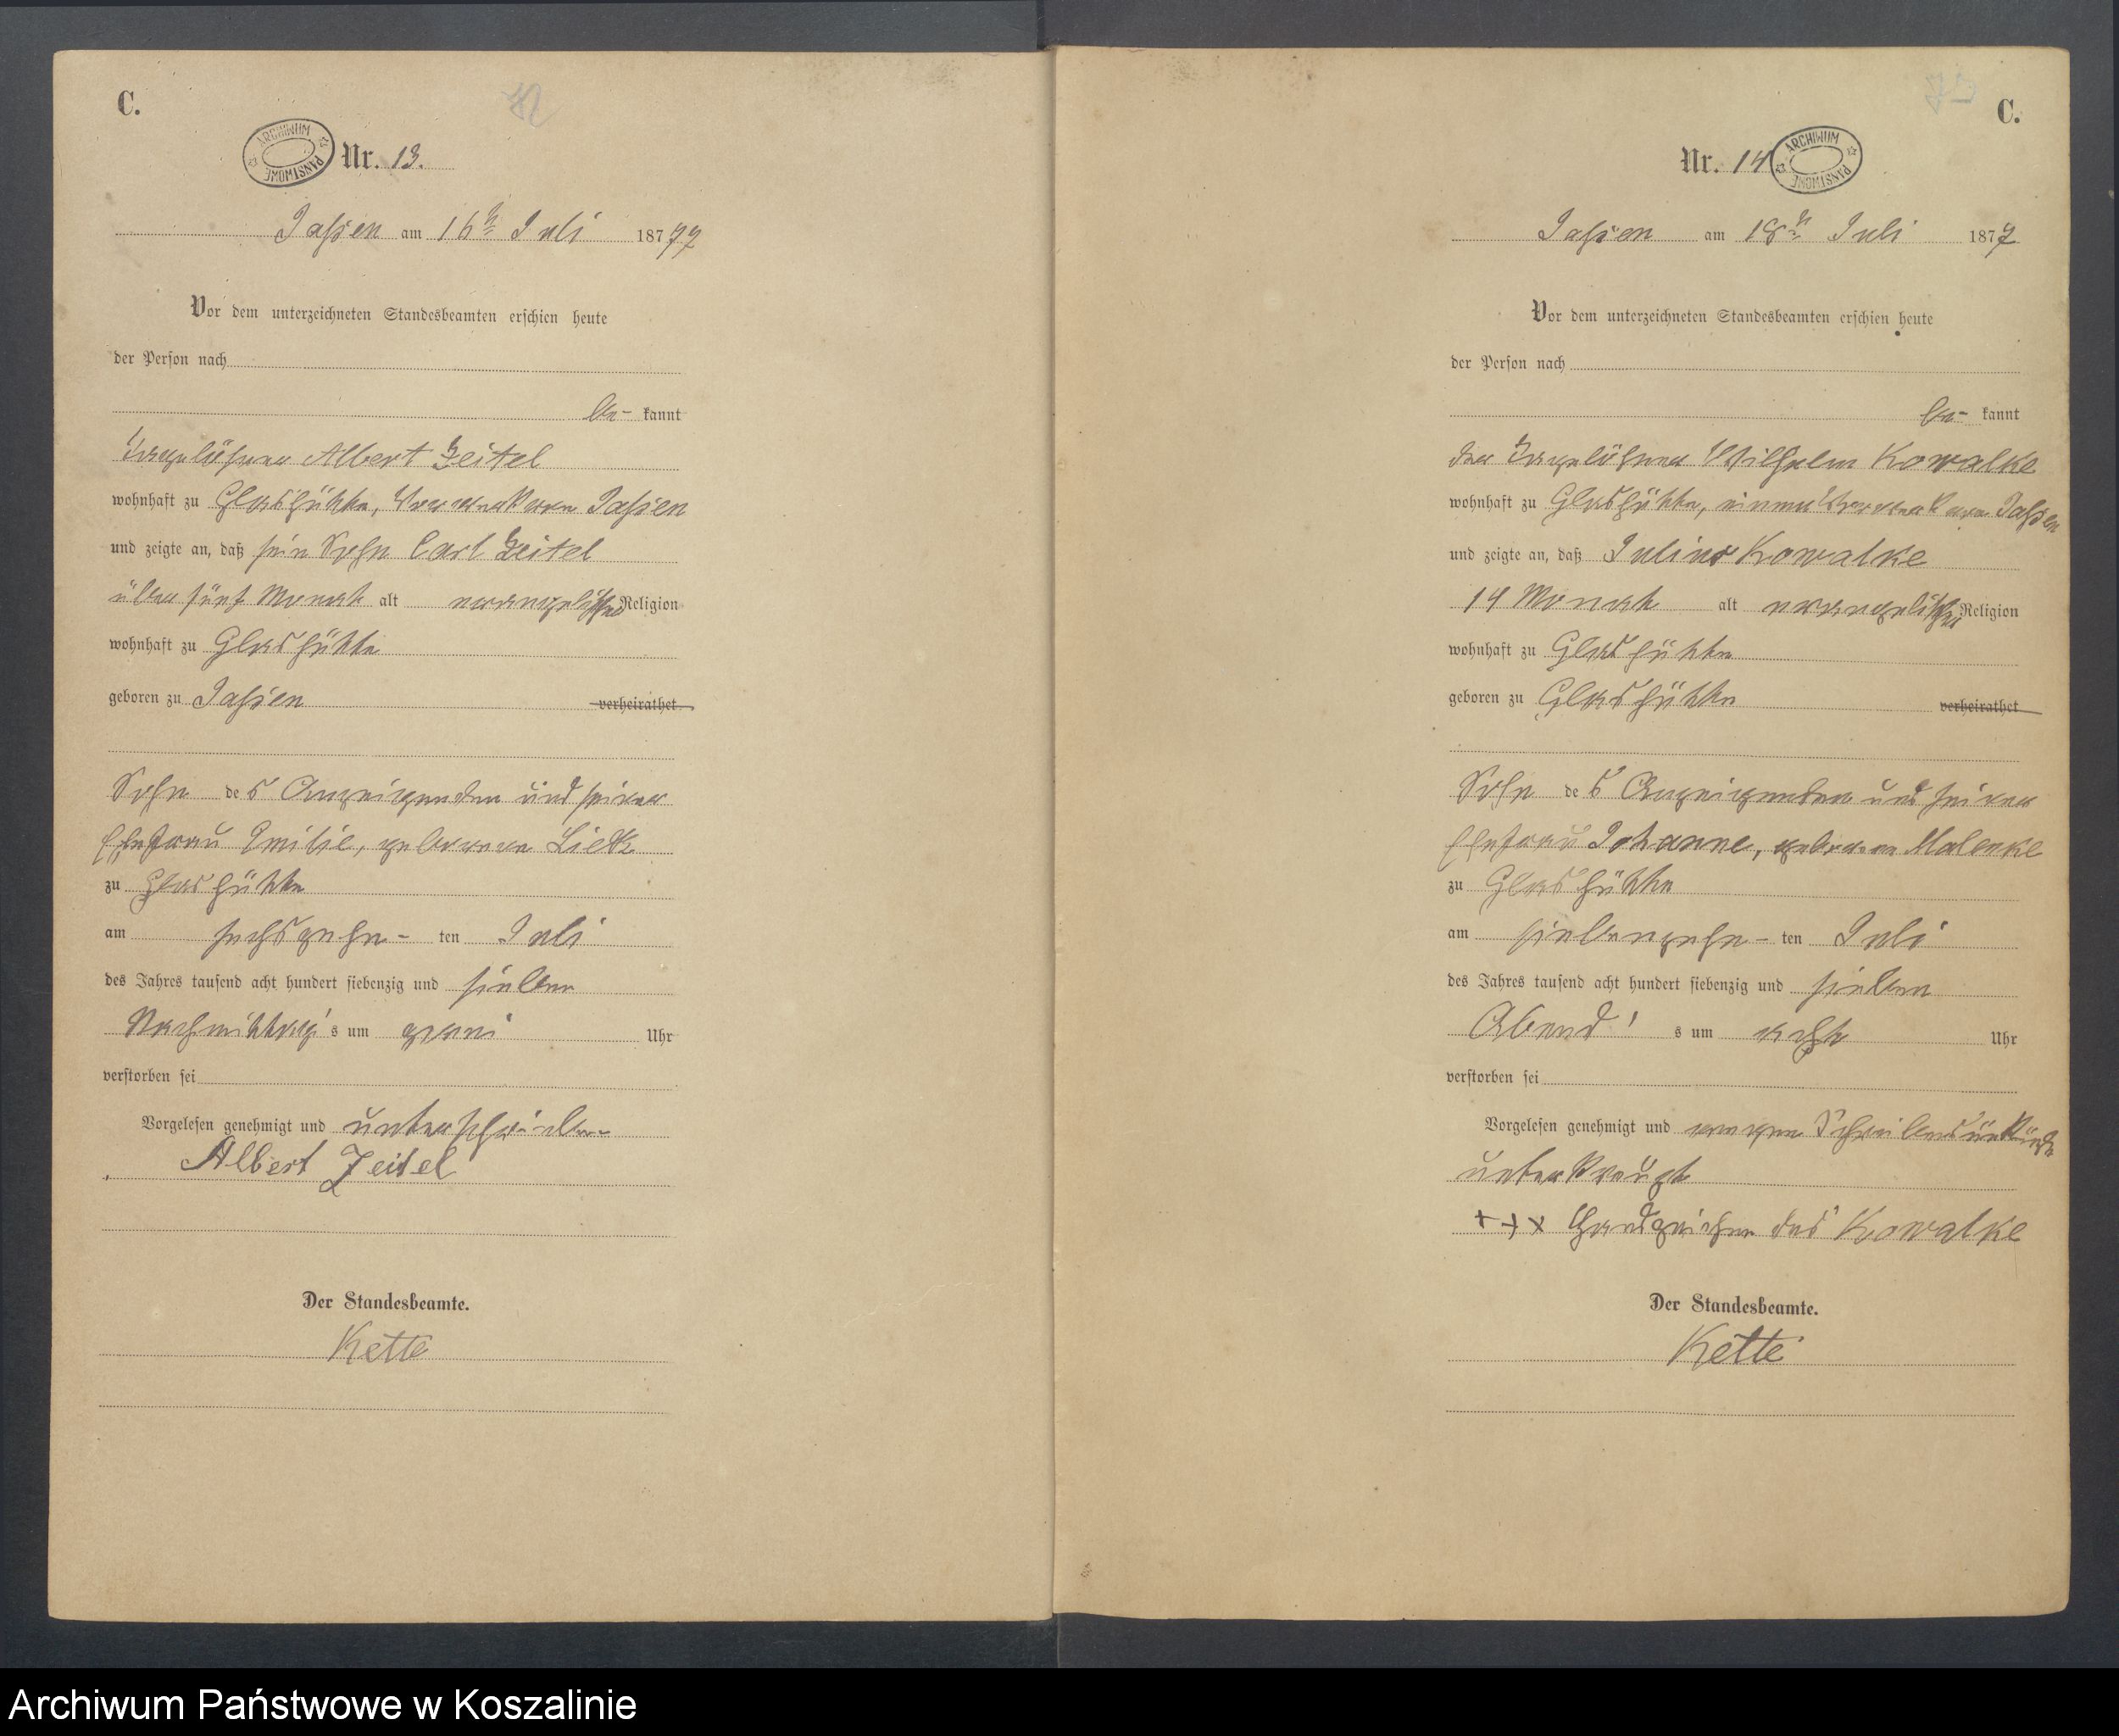 C.
Nr. 13.
ARCHIWUM PAŃSTWOWE
Jassen am 16ten Juli 18777
Vor dem unterzeichneten Standesbeamten erschien heute
der Person nach
be- kannt
Tagelöhner Albert Zeitel
wohnhaft zu Glashütte, Vorwerk von Jassen
und zeigte an, daß sein Sohn Carl Zeitel
über fünf Monat alt evangelischer Religion
wohnhaft zu Glashütte
geboren zu Jassen verheirathet
Sohn des Anzeigenden und seiner
Ehefrau Emilie, geborene Lietz
zu Glashütte
am sechszehn- ten Juli
des Jahres tausend acht hundert siebenzig und sieben
Nachmittags um zwei Uhr
verstorben sei
Vorgelesen genehmigt und unterschrieben
Albert Zeitel
Der Standesbeamte.
Kette
C.
Nr. 14
ARCHIWUM PAŃSTWOWE
Jassen am 18ten Juli 1877
Vor dem unterzeichneten Standesbeamten erschien heute
der Person nach
be- kannt
der Tagelöhner Wilhelm Kowalke
wohnhaft zu Glashütte, einem Vorwerk von Jassen
und zeigte an, daß Julius Kowalke
14 Monat alt evangelischer Religion
wohnhaft zu Glashütte
geboren zu Glashütte verheirathet
Sohn des Anzeigenden und seiner
Ehefrau Johanne, geborene Malenke
zu Glashütte
am siebenzehn- ten Juli
des Jahres tausend acht hundert siebenzig und sieben
Abends um acht Uhr
verstorben sei
Vorgelesen genehmigt und wegen Schreibensunkunde
unterkreuzt
+++ Handzeichen des Kowalke
Der Standesbeamte.
Kette
Archiwum Państwowe w Koszalinie